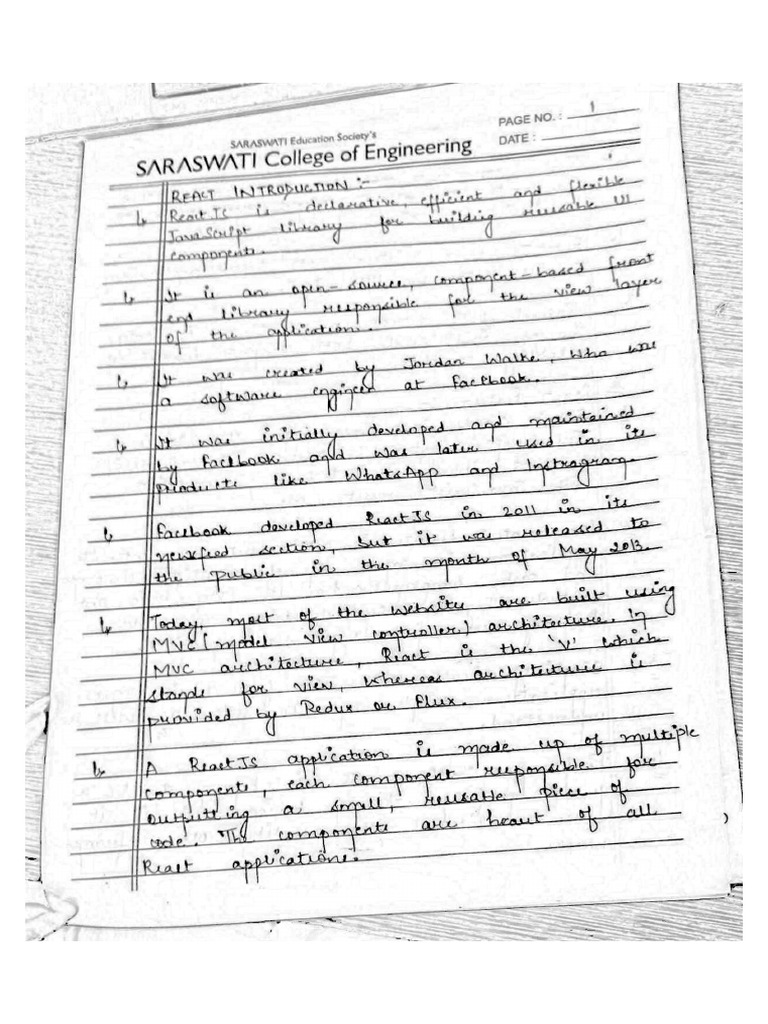 SARASWATI Education Society's
SARASWATI College of Engineering
PAGE NO. : 1
DATE :
REACT INTRODUCTION :-
↳ ReactJS is declarative, efficient and flexible
JavaScript library for building reusable UI
components.
↳ It is an open-source, component-based front
end library responsible for the view layer
of the application.
↳ It was created by Jordan Walke, who was
a software engineer at Facebook.
↳ It was initially developed and maintained
by Facebook and was later used in its
products like WhatsApp and Instragram.
↳ Facebook developed ReactJS in 2011 in its
newsfeed section, but it was released to
the public in the month of May 2013.
↳ Today, most of the website are built using
MVC (model view controller) architecture. In
MVC architecture, React is the 'V' which
stands for view, whereas architecture is
provided by Redux or Flux.
↳ A ReactJS application is made up of multiple
components, each component responsible for
outputting a small, reusable piece of
code. The components are heart of all
React applications.